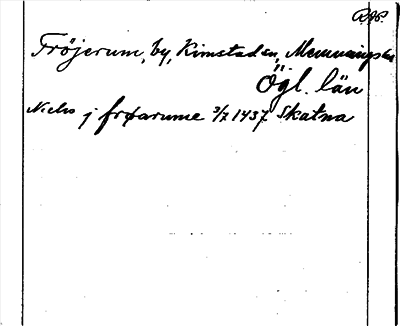 Fröjerum, by, Kimstad sn, Memmings hd
Ögl. län
Niclis j frøarume 3/7 1437 Skatna